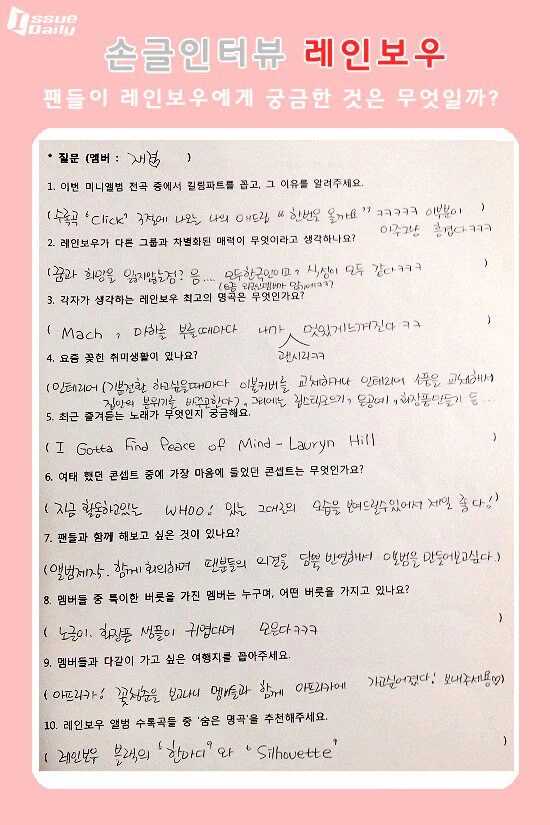 Issue Daily
손글인터뷰 레인보우
팬들이 레인보우에게 궁금한 것은 무엇일까?
* 질문 (멤버 : 재경 )
1. 이번 미니앨범 전곡 중에서 킬링파트를 꼽고, 그 이유를 알려주세요.
( 수록곡 'Click' 나오는 나의 애드립 " 한번 올까요 " ㅋㅋㅋㅋㅋ 이부분이
아주그냥 ㅋㅋㅋ )
2. 레인보우가 다른 그룹과 차별화된 매력이 무엇이라고 생각하나요?
(꿈과 희망을 잃지않는점? 음.... 모두한국인이고, 식성이 모두 같다ㅋㅋㅋ )
3. 각자가 생각하는 레인보우 최고의 명곡은 무엇인가요?
( Mach , 마하를 부를때마다 내가 괜시리ㅋㅋ 멋있게느껴진다 ㅋㅋ )
4. 요즘 꽂힌 취미생활이 있나요?
(인테리어 (기분전환 하고싶을때마다 이불커버를 교체하거나 인테리어 소품을 교체해서
집안의 분위기를 바꾸곤한다) , 그외에는 립스틱모으기, 화장품만들기 등 ...
5. 최근 즐겨듣는 노래가 무엇인지 궁금해요.
( I Gotta Find Peace of Mind - Lauryn Hill )
6. 여태 했던 콘셉트 중에 가장 마음에 들었던 콘셉트는 무엇인가요?
( 지금 활동하고있는 WHOO! 있는 그대로의 모습을 보여드릴수있어서 제일 좋다! )
7. 팬들과 함께 해보고 싶은 것이 있나요?
(앨범제작. 함께 회의하며 팬분들의 의견을 듬뿍 반영해서 앨범을 만들어보고싶다.)
8. 멤버들 중 특이한 버릇을 가진 멤버는 누구며, 어떤 버릇을 가지고 있나요?
( 노을이. 화장품 샘플이 귀엽다며 모은다ㅋㅋㅋ )
9. 멤버들과 다같이 가고 싶은 여행지를 꼽아주세요.
( 아프리카! 꽃청춘을 보고나니 멤버들과 함께 아프리카에 가고싶어졌다! 보내주세용♡)
10. 레인보우 앨범 수록곡들 중 '숨은 명곡'을 추천해주세요.
( 레인보우 블랙의 "한마디" 와 " Silhouette" )